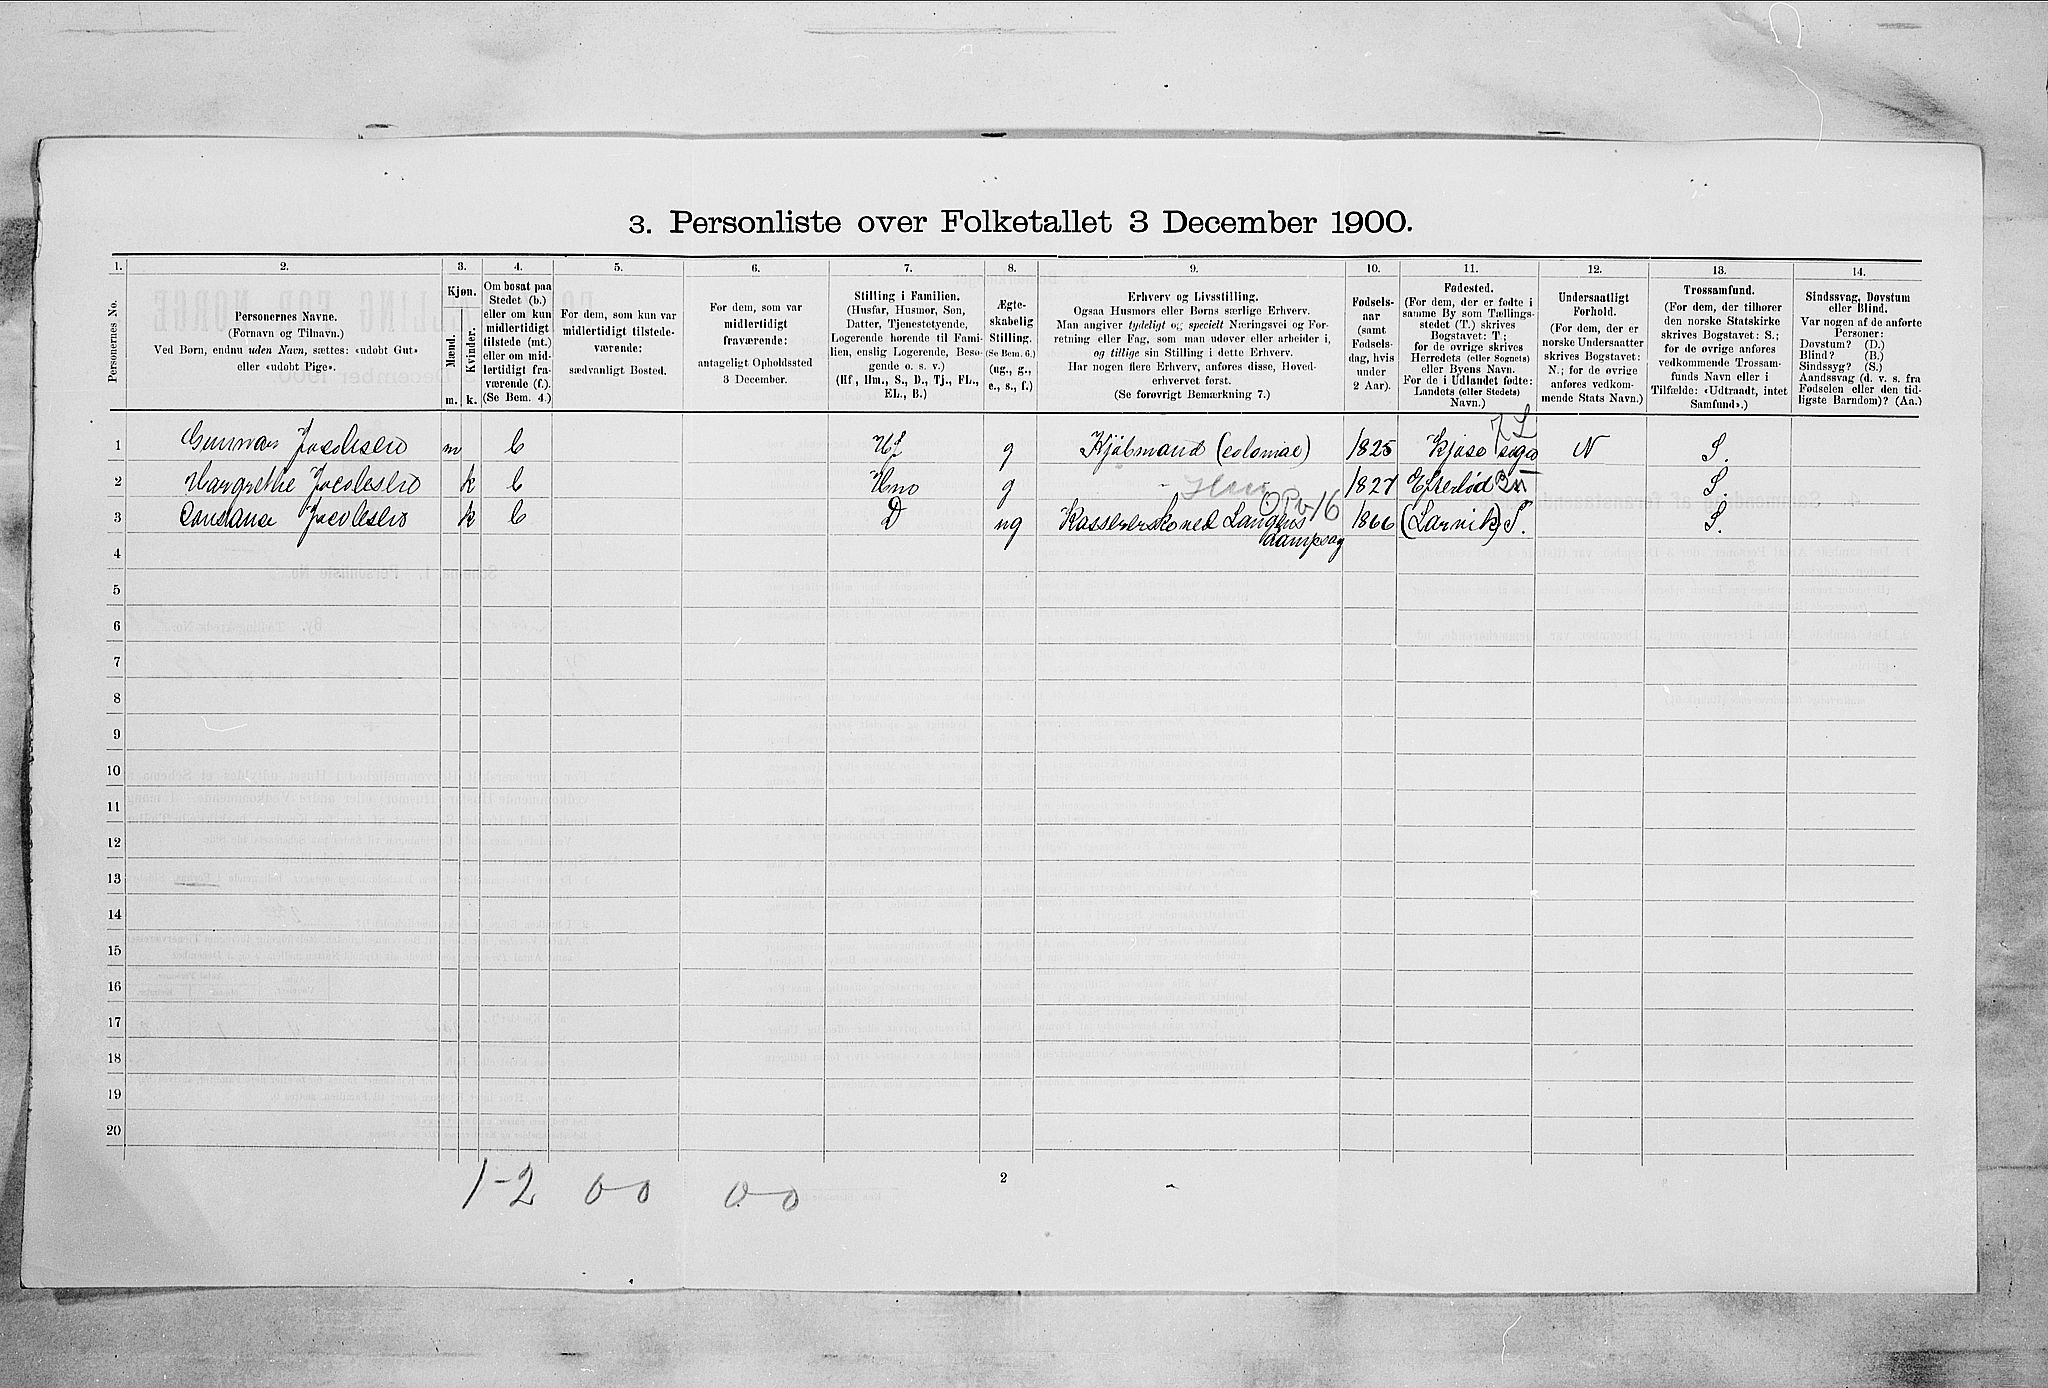 3. Personliste over Folketallet 3 December 1900.
1. 2. 3. 4. 5. 6. 7. 8. 9. 10. 11. 12. 13. 14.
Personernes No.
Personernes Navne.
(Fornavn og Tilnavn.)
Ved Børn, endnu uden Navn, sættes: «udøbt Gut»
eller «udøbt Pige».
Kjøn.
Mænd. Kvinder.
m. k.
Om bosat paa
Stedet (b.)
eller om kun
midlertidigt
tilstede (mt.)
eller om mid-
lertidigt fra-
værende (f.).
(Se Bem. 4.)
For dem, som kun var
midlertidigt tilstede-
værende:
sædvanligt Bosted.
For dem, som var
midlertidigt
fraværende:
antageligt Opholdssted
3 December.
Stilling i Familien.
(Husfar, Husmor, Søn,
Datter, Tjenestetyende,
Logerende hørende til Fami-
lien, enslig Logerende, Besø-
gende o. s. v.)
(Hf., Hm., S., D., Tj., FL.,
EL., B.)
Ægte-
skabelig
Stilling.
(Se Bem. 6.)
(ug., g.,
e., s., f.)
Erhverv og Livsstilling.
Ogsaa Husmors eller Børns særlige Erhverv.
Man angiver tydeligt og specielt Næringsvei og For-
retning eller Fag, som man udøver eller arbeider i,
og tillige sin Stilling i dette Erhverv.
Har nogen flere Erhverv, anføres disse, Hoved-
erhvervet først.
(Se forøvrigt Bemærkning 7.)
Fødsels-
aar
(samt
Fødsels-
dag, hvis
under
2 Aar).
Fødested.
(For dem, der er fødte i
samme By som Tællings-
stedet (T.) skrives
Bogstavet: T.;
for de øvrige skrives
Herredets (eller Sognets)
eller Byens Navn.
For de i Udlandet fødte:
Landets (eller Stedets)
Navn.)
Undersaatligt
Forhold.
(For dem, der er
norske Undersaatter
skrives Bogstavet:
N.; for de øvrige
anføres vedkom-
mende Stats Navn.)
Trossamfund.
(For dem, der tilhører
den norske Statskirke
skrives Bogstavet: S.;
for de øvrige anføres
vedkommende Trossam-
funds Navn eller i
Tilfælde: «Udtraadt, intet
Samfund».)
Sindssvag, Døvstum
eller Blind.
Var nogen af de anførte
Personer:
Døvstum? (D.)
Blind? (B.)
Sindssyg? (S.)
Aandssvag (d. v. s. fra
Fødselen eller den tid-
ligste Barndom)? (Aa.)
1 Gunnar Jacobsen m b Hf g Kjøbmand (colonial) 1825 Kjose sogn N S.
2 Margrethe Jacobsen k b Hm g 1827 Efterlød S.
3 Constance Jacobsen k b D ug Kassererske ved Langens 1866 (Larvik) T. S.
dampsag
4
5
6
7
8
9
10
11
12
13
14
15
16
17
18
19
20
1-2 0-0 0-0
2